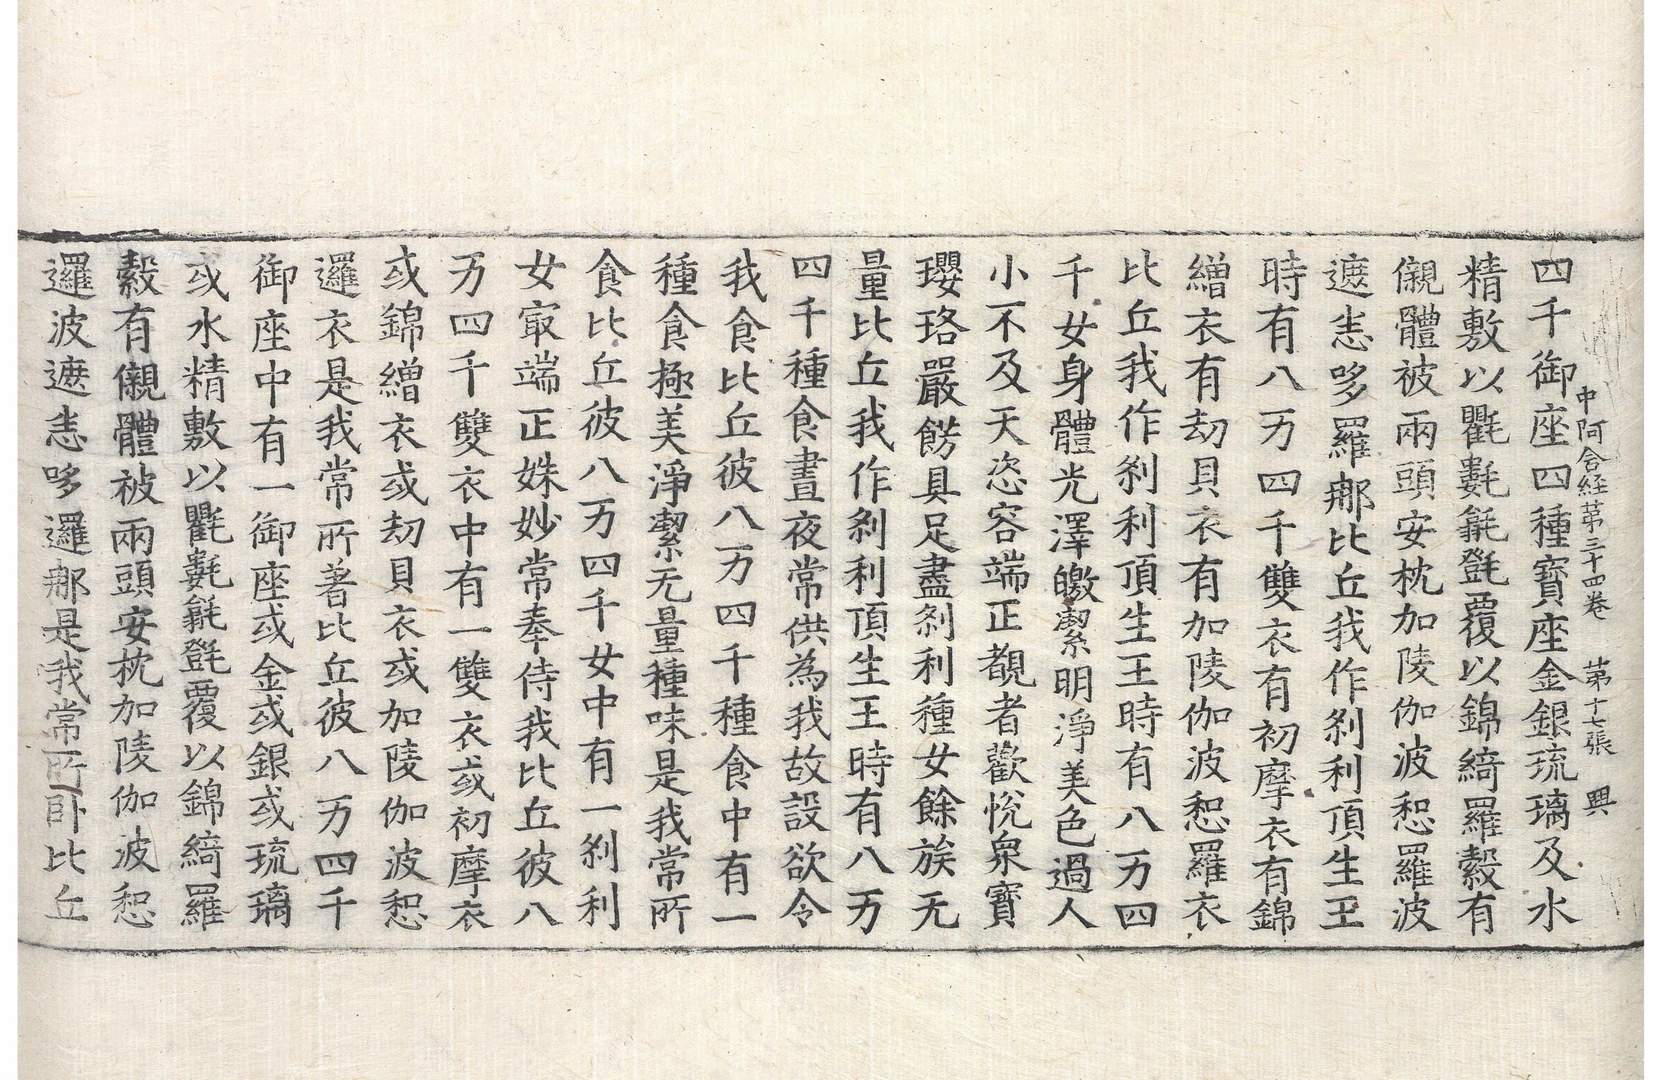 中阿含経苐三十四卷 苐十七張 興
四千御座四種寶座金銀琉璃及水
精敷以氍氀毾㲪覆以錦綺羅縠有
儭體被兩頭安枕加陵伽波惒羅波
遮悉哆羅那比丘我作刹利頂生王
時有八万四千雙衣有初摩衣有錦
繒衣有劫貝衣有加陵伽波惒羅衣
比丘我作刹利頂生王時有八万四
千女身體光澤皦潔明淨美色過人
小不及天恣容端正覩者歡悅衆寶
瓔珞嚴餝具足盡刹利種女餘族无
量比丘我作刹利頂生王時有八万
四千種食晝夜常供為我故設欲令
我食比丘彼八万四千種食中有一
種食極美淨潔无量種味是我常所
食比丘彼八万四千女中有一刹利
女冣端正姝妙常奉侍我比丘彼八
万四千雙衣中有一雙衣或初摩衣
或錦繒衣或劫貝衣或加陵伽波惒
邏衣是我常所著比丘彼八万四千
御座中有一御座或金或銀或琉璃
或水精敷以氍氀毾㲪覆以錦綺羅
縠有儭體被兩頭安枕加陵伽波惒
邏波遮悉哆邏那是我常所卧比丘